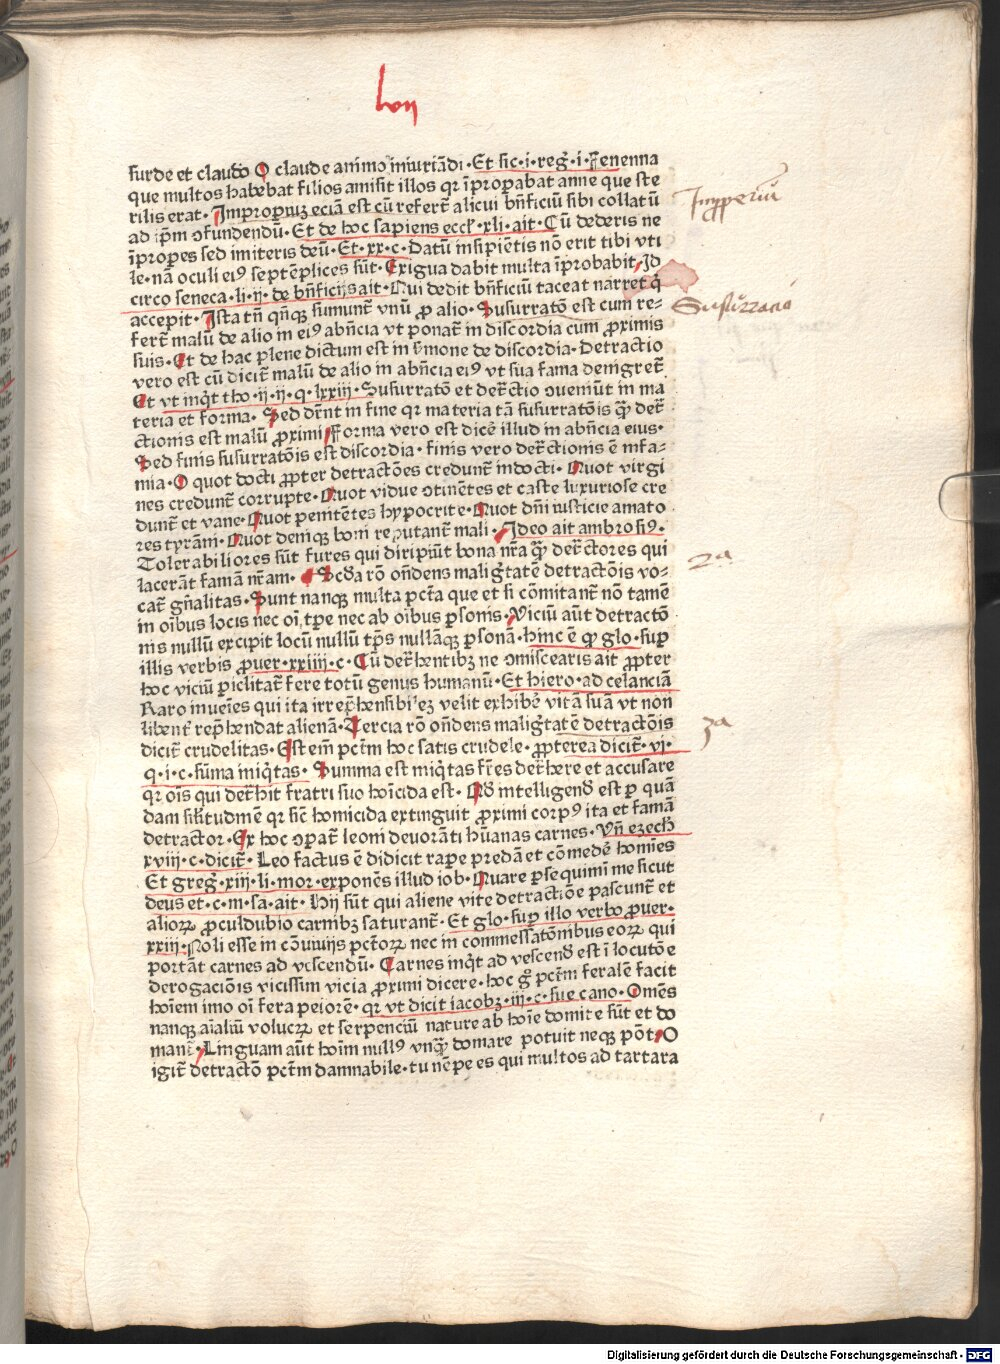 lvii
surde et claudo O claude animo iniuriādi· Et sic·i·reḡ·i·Fenenna
que multos habebat filios amisit illos qr īproꝑabat anne que ste
rilis erat· Improꝑiuꝫ eciā est cū referт̄ alicui bn̄ficiū sibi collatū
Impperiū
ad ip̄m ꝯfundendū· Et de hoc sapiens eccľ·xli·ait· Cū dederis ne
īproꝑes sed imiteris deū· Et·xx·c· Datū insipiētis nō erit tibi vti
le·nā oculi eiꝰ septēplices sūt· Exigua dabit multa īprobabit· Id
circo seneca·li·ij·de bn̄ficijs ait· Qui dedit bn̄ficiū taceat narret q̇
accepit· Ista tn̄ qn̄qꝫ sumunт̄ vnū ꝓ alio· Susurratō est cum re-
Susurracio
ferт̄ malū de alio in eiꝰ abn̄cia vt ponaт̄ in discordia cum ꝓximis
suis· Et de hac plene dictum est in s̄mone de discordia· Detractio
vero est cū diciт̄ malū de alio in abn̄cia eiꝰ vt sua fama denigreт̄
Et vt inq̇t tho·ij·ij·q·lxxiij· Susurratō et deт̄ctio ꝯueniūt in ma
teria et forma· Sed dr̄nt in fine qr materia tā susurratōis qꝫ̄ deт̄
ctionis est malū ꝓximi Forma vero est dicē illud in abn̄cia eius·
Sed finis susurratōis est discordia· finis vero deт̄ctionis ē infa-
mia· O quot docti ꝓpter detractōes credunт̄ indocti· Quot virgi
nes credunт̄ corrupte· Quot vidue ꝯtinētes et caste luxuriose cre
dunт̄ et vane· Quot penitētes hypocrite· Quot dn̄i iusticie amato
res tyrāni· Quot deniqꝫ boni reputanт̄ mali· Ideo ait ambrosiꝰ·
Tolerabiliores sūt fures qui diripiūt bona nr̄a qꝫ̄ deт̄ctores qui
2ᵃ
lacerāt famā nr̄am· Scd̄a rō on̄dens maliġtatē detractōis vo-
caт̄ gn̄alitas· Sunt nanqꝫ multa pctā que et si cōmitanт̄ nō tamē
in oībus locis nec oī tꝑe nec ab oībus ꝑsonis· Viciū aūt detractō
nis nullū excipit locū nullū tp̄s nullāqꝫ ꝑsonā· hinc ē ꝙ glo·suꝑ
illis verbis ꝓuer·xxiiij·c· Cū deт̄hentibꝫ ne ꝯmiscearis ait ꝓpter
hoc viciū ꝑiclitaт̄ fere totū genus humanū· Et hiero·ad celanciā
Raro inueīes qui ita irreꝑhensibilꝫ velit exhibē vitā suā vt non
libenт̄ repn̄hendat alienā· Tercia rō on̄dens maliġtatē detractōis
3ᵃ
diciт̄ crudelitas· Est em̄ pctm̄ hoc satis crudele· ꝓpterea diciт̄·vi·
q·i·c·sūma iniq̇tas· Summa est iniq̇tas fr̄es deт̄here et accusare
qr oīs qui deт̄hit fratri suo hoīcida est· Qd̄ intelligend̄ est ꝑ quā
dam silitudinē qr sic̄ homicida extinguit ꝓximi corpꝰ ita et famā
detractor· Ex hoc ꝯꝑaт̄ leoni deuorāti hūanas carnes· Vn̄ ezech̄
xviij·c·diciт̄· Leo factus ē didicit raꝑe predā et cōmedē homīes
Et greḡ·xiij·li·mor·exponēs illud iob· Quare ꝑsequimini me sicut
deus et·c·m·sa·ait· Hij sūt qui aliene vite detractiōe pascunт̄ et
alioꝝ ꝓculdubio carnibꝫ saturanт̄· Et glo·suꝑ illo verbo ꝓuer·
xxiij· Noli esse in cōuiuijs pctōꝝ nec in commessatōnibus eoꝝ qui
portāt carnes ad vescendū· Carnes inq̇t ad vescend̄ est ī locutōe
derogaciōis vicissim vicia ꝓximi dicere· hoc gͦ pctm̄ feralē facit
hoīem imo oī fera peiorē· qr vt dicit iacobꝫ·iij·c·sue cano· Omēs
nanqꝫ aīaliū volucꝝ et serpenciū nature ab hoīe domite sūt et do
manт̄· Linguam aūt hoīm nullꝰ vnqꝫ̄ domare potuit neqꝫ pōt· O
igiт̄ detractō pctm̄ damnabile·tu nēpe es qui multos ad tartara
Digitalisierung gefördert durch die Deutsche Forschungsgemeinschaft - DFG